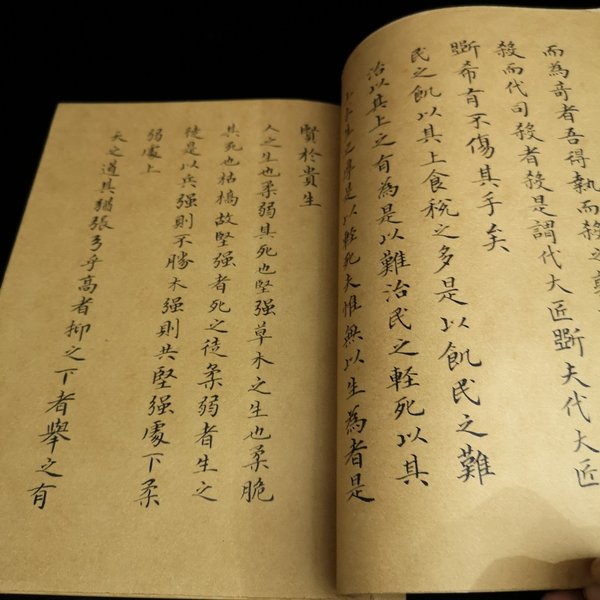 而為竒者吾得執而殺之
殺而代司殺者殺是謂代大匠斲夫代大匠
斲希有不傷其手矣
民之飢以其上食稅之多是以飢民之難
治以其上之有為是以難治民之輕死以其
是以輕死夫惟無以生為者是
賢於貴生
人之生也柔弱其死也堅强草木之生也柔脆
其死也枯槁故堅强者死之徒柔弱者生之
徒是以兵强則不勝木强則共堅强處下柔
弱處上
天之道其猶張弓乎高者抑之下者舉之有